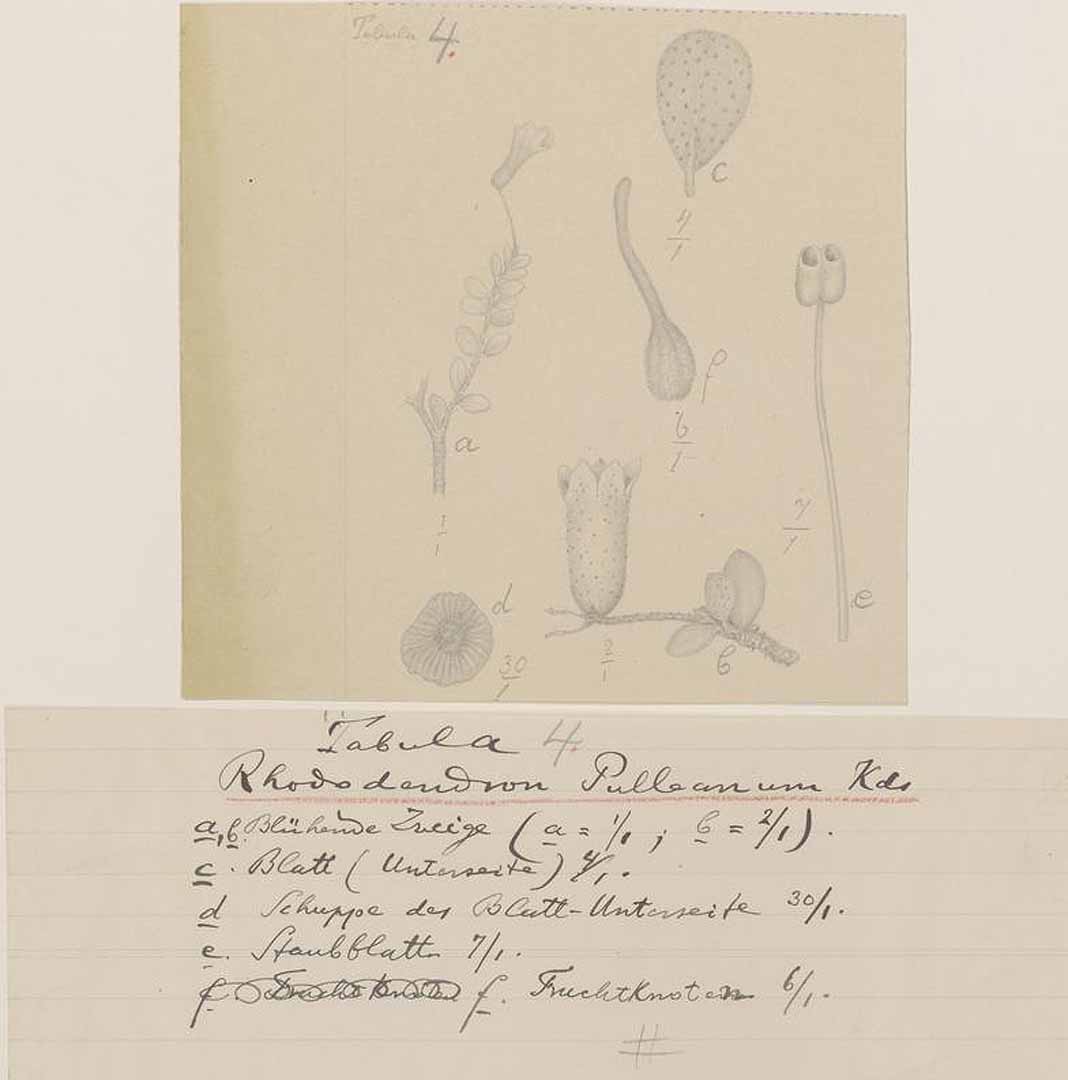 Tabula 4.
c
4/1
f
6/1
a
1/1
7/1
e
d
30/1
2/1
b
Tabula 4.
Rhododendron Pulleanum Kds
a,b. Blühende Zweige (a = 1/1 ; b = 2/1).
c. Blatt (Unterseite) 4/1.
d Schuppe der Blatt-Unterseite 30/1.
e. Staubblatt 7/1.
f Fruchtknoten f. Fruchtknoten 6/1.
#